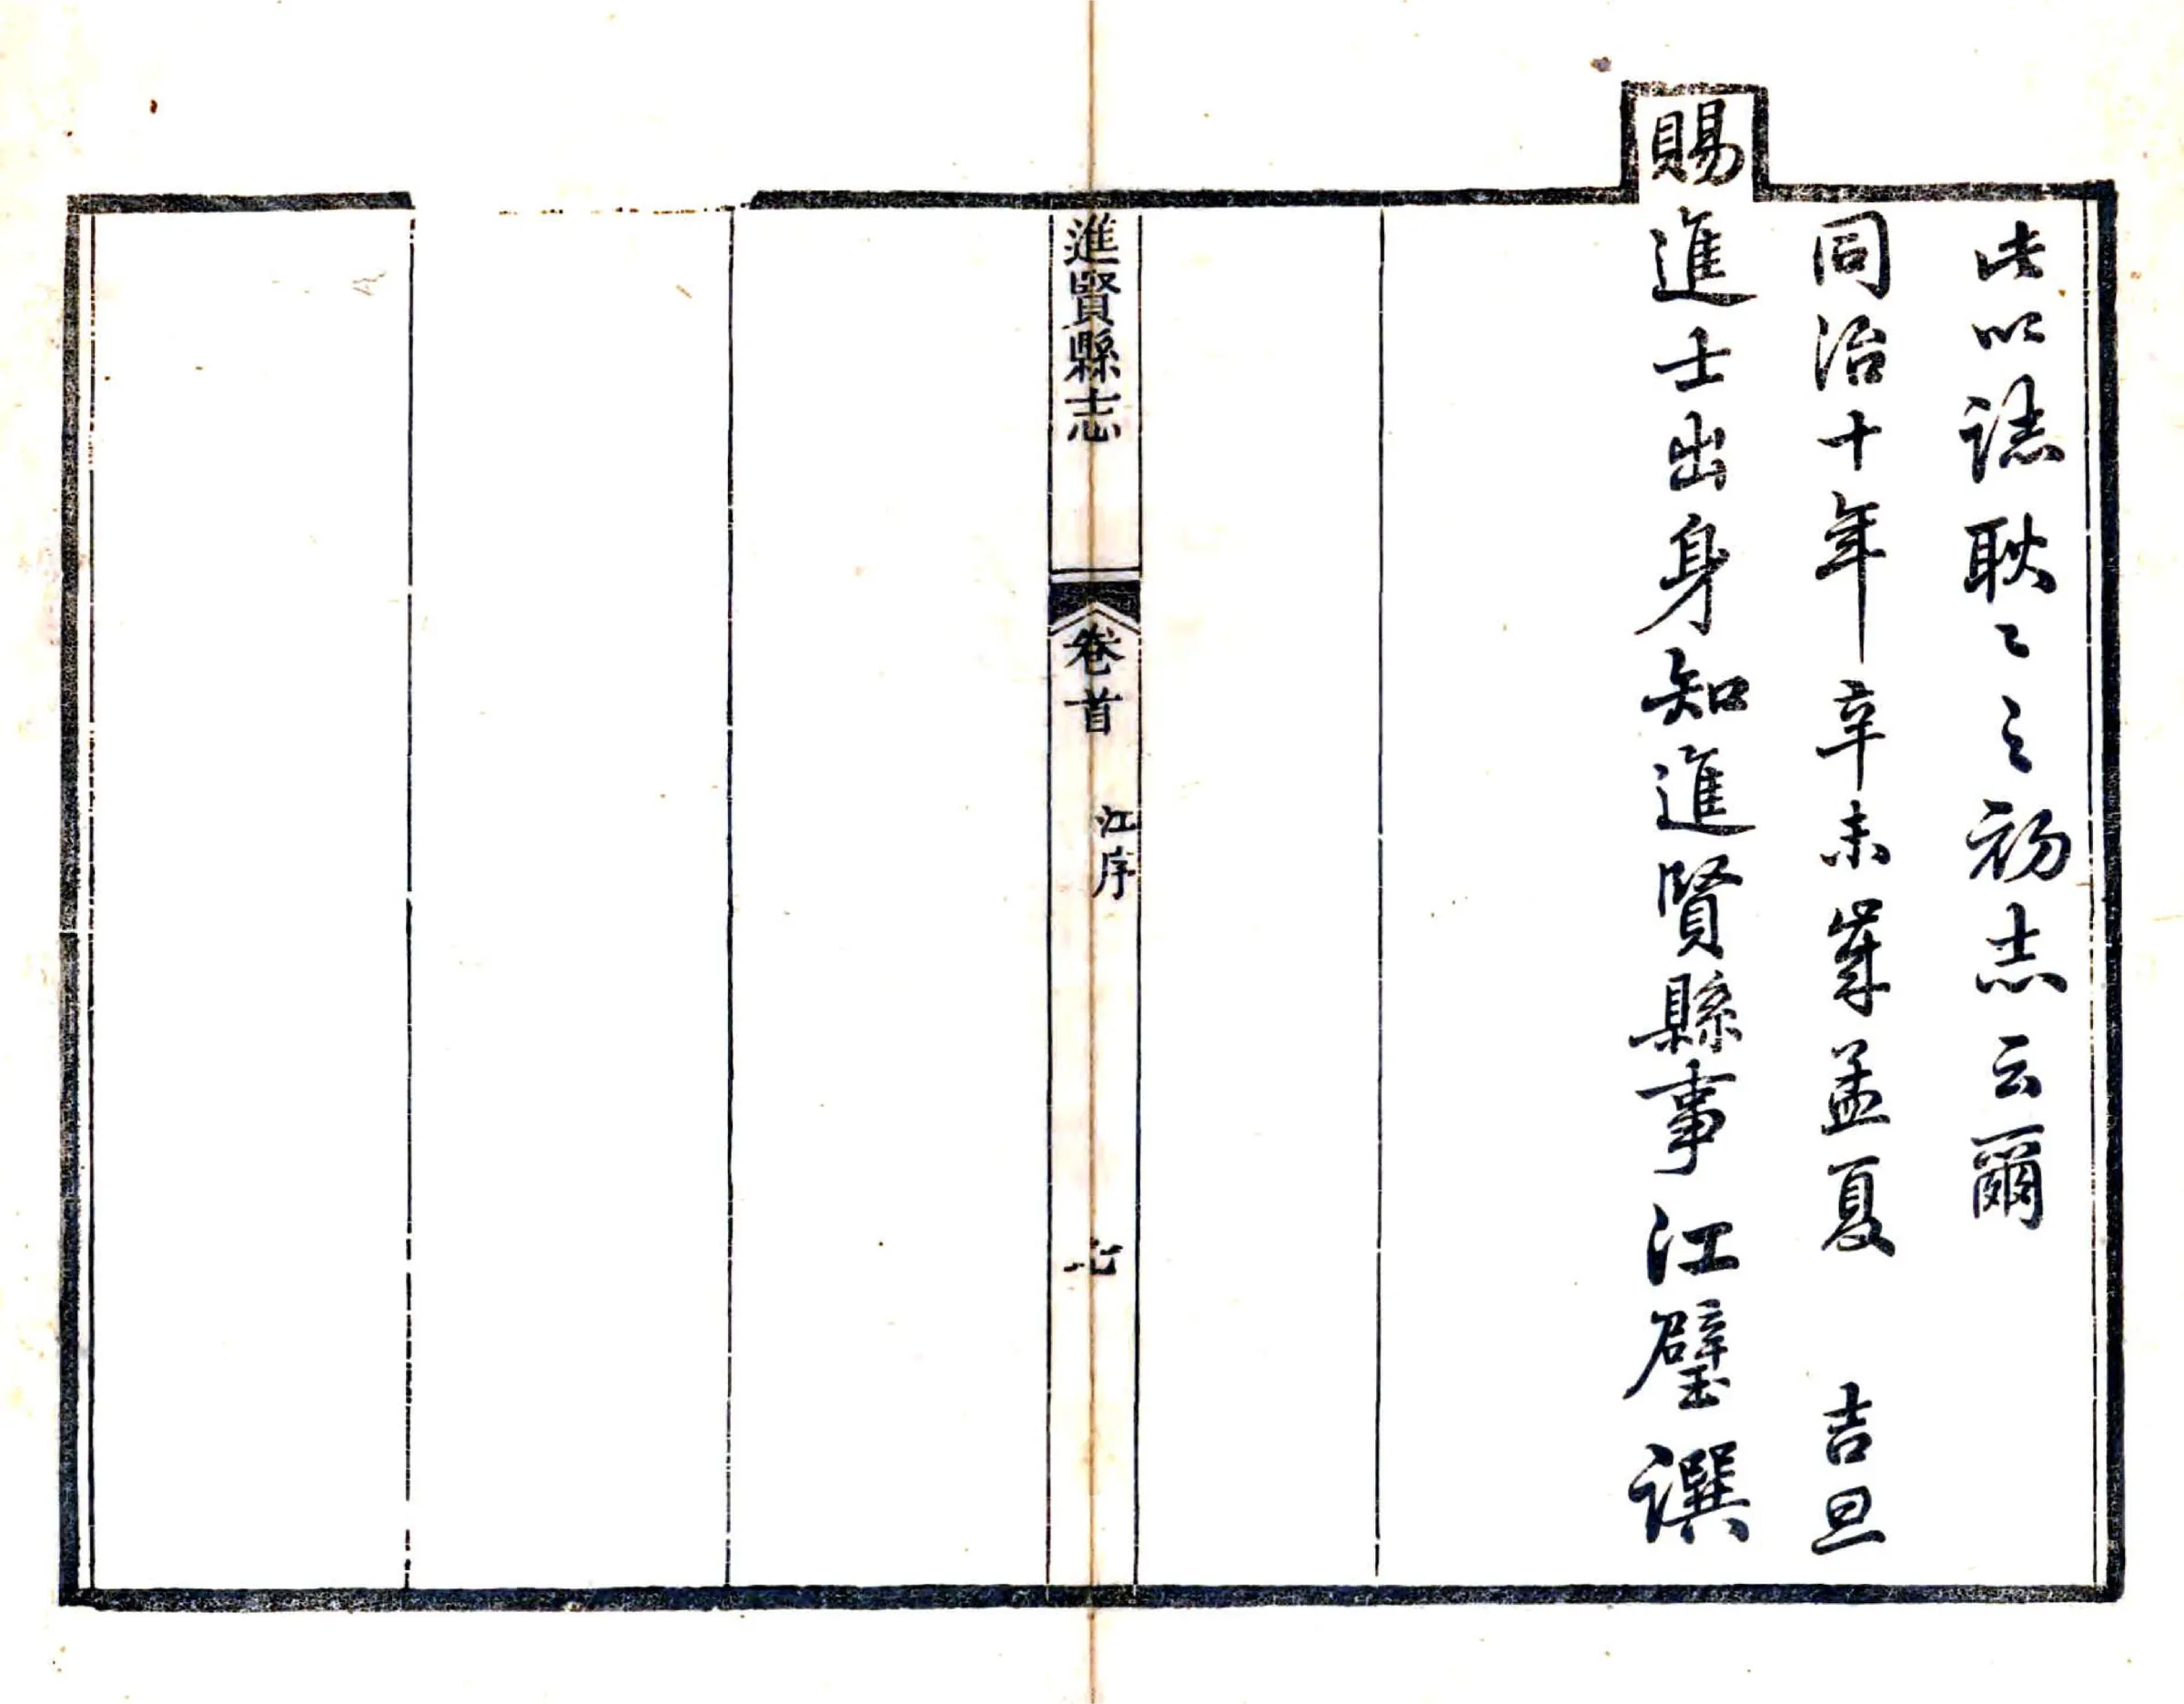 此以誌耿〻之初志云爾
同治十年辛未嵗孟夏 吉旦
賜進士出身知進賢縣事江璧譔
進賢縣志 卷首 江序 七